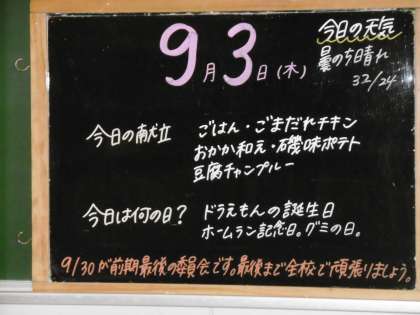 今日の天気
9月3日(木)
曇のち日晴れ
32/24
今日の献立 ごはん・ごまだれチキン
おかか和え・磯味ポテト
豆腐チャンプルー
今日は何の日? ドラえもんの誕生日
ホームラン記念日。グミの日。
9/30が前期最後の委員会です。最後まで全校で頑張りましょう。